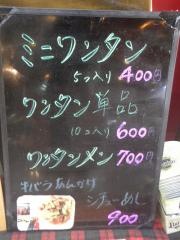 ミニワンタン
5コ入り 400円
ワンタン単品
10コ入り 600円
ワンタンメン 700円
牛バラあんかけ
シチューめし
900